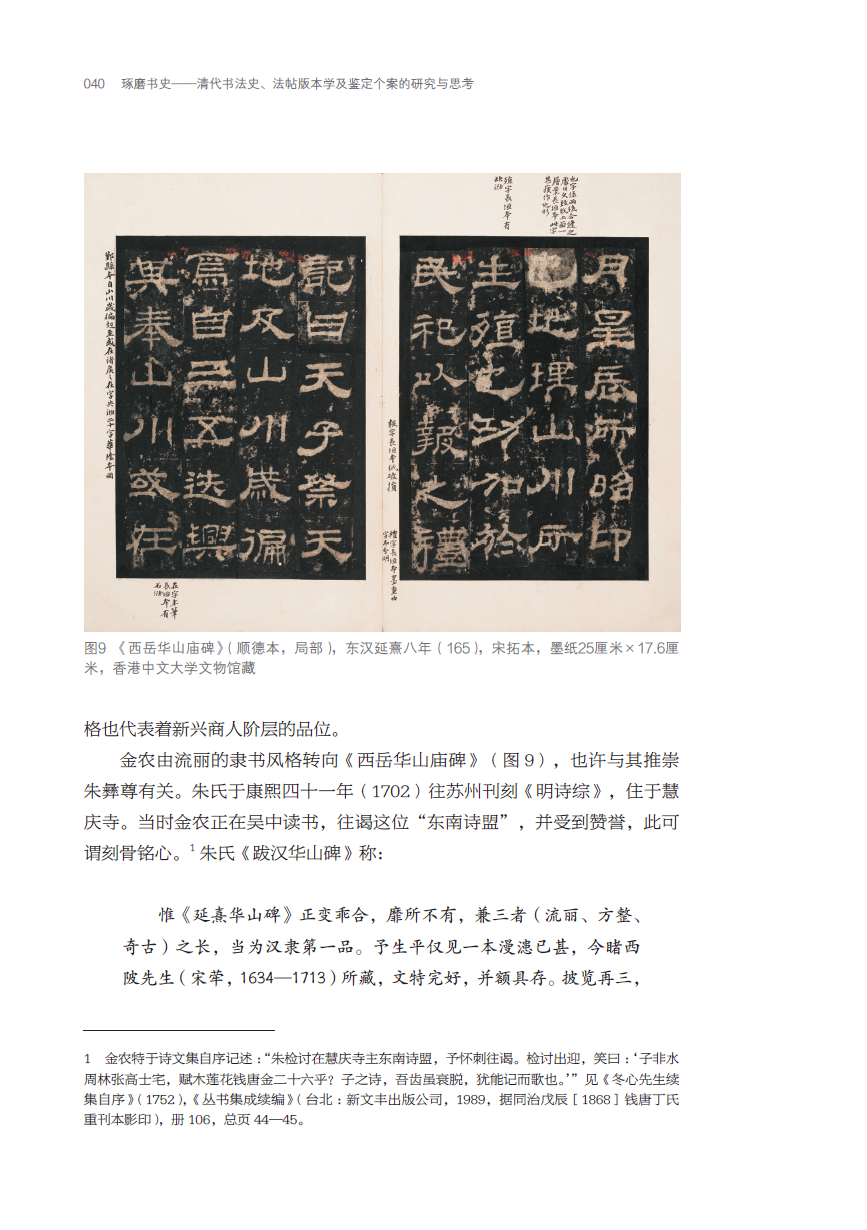 040 琢磨书史——清代书法史、法帖版本学及鉴定个案的研究与思考
也字係兩紙合縫之
月星辰所昭卬
也地理山川所
生殖也功加於
民祀以報之禮
殖字長垣本有
缺泐
報字長垣本紙破損
禮字長垣本墨重曲
字不分明
記曰天子祭天
地及山川歲徧
焉自三五迭興
其奉山川或在
在字末筆
長垣本有
石泐
图9 《西岳华山庙碑》（顺德本，局部），东汉延熹八年（165），宋拓本，墨纸25厘米×17.6厘
米，香港中文大学文物馆藏
格也代表着新兴商人阶层的品位。
金农由流丽的隶书风格转向《西岳华山庙碑》（图 9），也许与其推崇
朱彝尊有关。朱氏于康熙四十一年（1702）往苏州刊刻《明诗综》，住于慧
庆寺。当时金农正在吴中读书，往谒这位“东南诗盟”，并受到赞誉，此可
谓刻骨铭心。1 朱氏《跋汉华山碑》称：
惟《延熹华山碑》正变乖合，靡所不有，兼三者（流丽、方整、
奇古）之长，当为汉隶第一品。予生平仅见一本漫漶已甚，今睹西
陂先生（宋荦，1634—1713）所藏，文特完好，并额具存。披览再三，
1 金农特于诗文集自序记述：“朱检讨在慧庆寺主东南诗盟，予怀刺往谒。检讨出迎，笑曰：‘子非水
周林张高士宅，赋木莲花钱唐金二十六乎？子之诗，吾齿虽衰脱，犹能记而歌也。’”见《冬心先生续
集自序》（1752），《丛书集成续编》（台北：新文丰出版公司，1989，据同治戊辰［1868］钱唐丁氏
重刊本影印），册 106，总页 44—45。